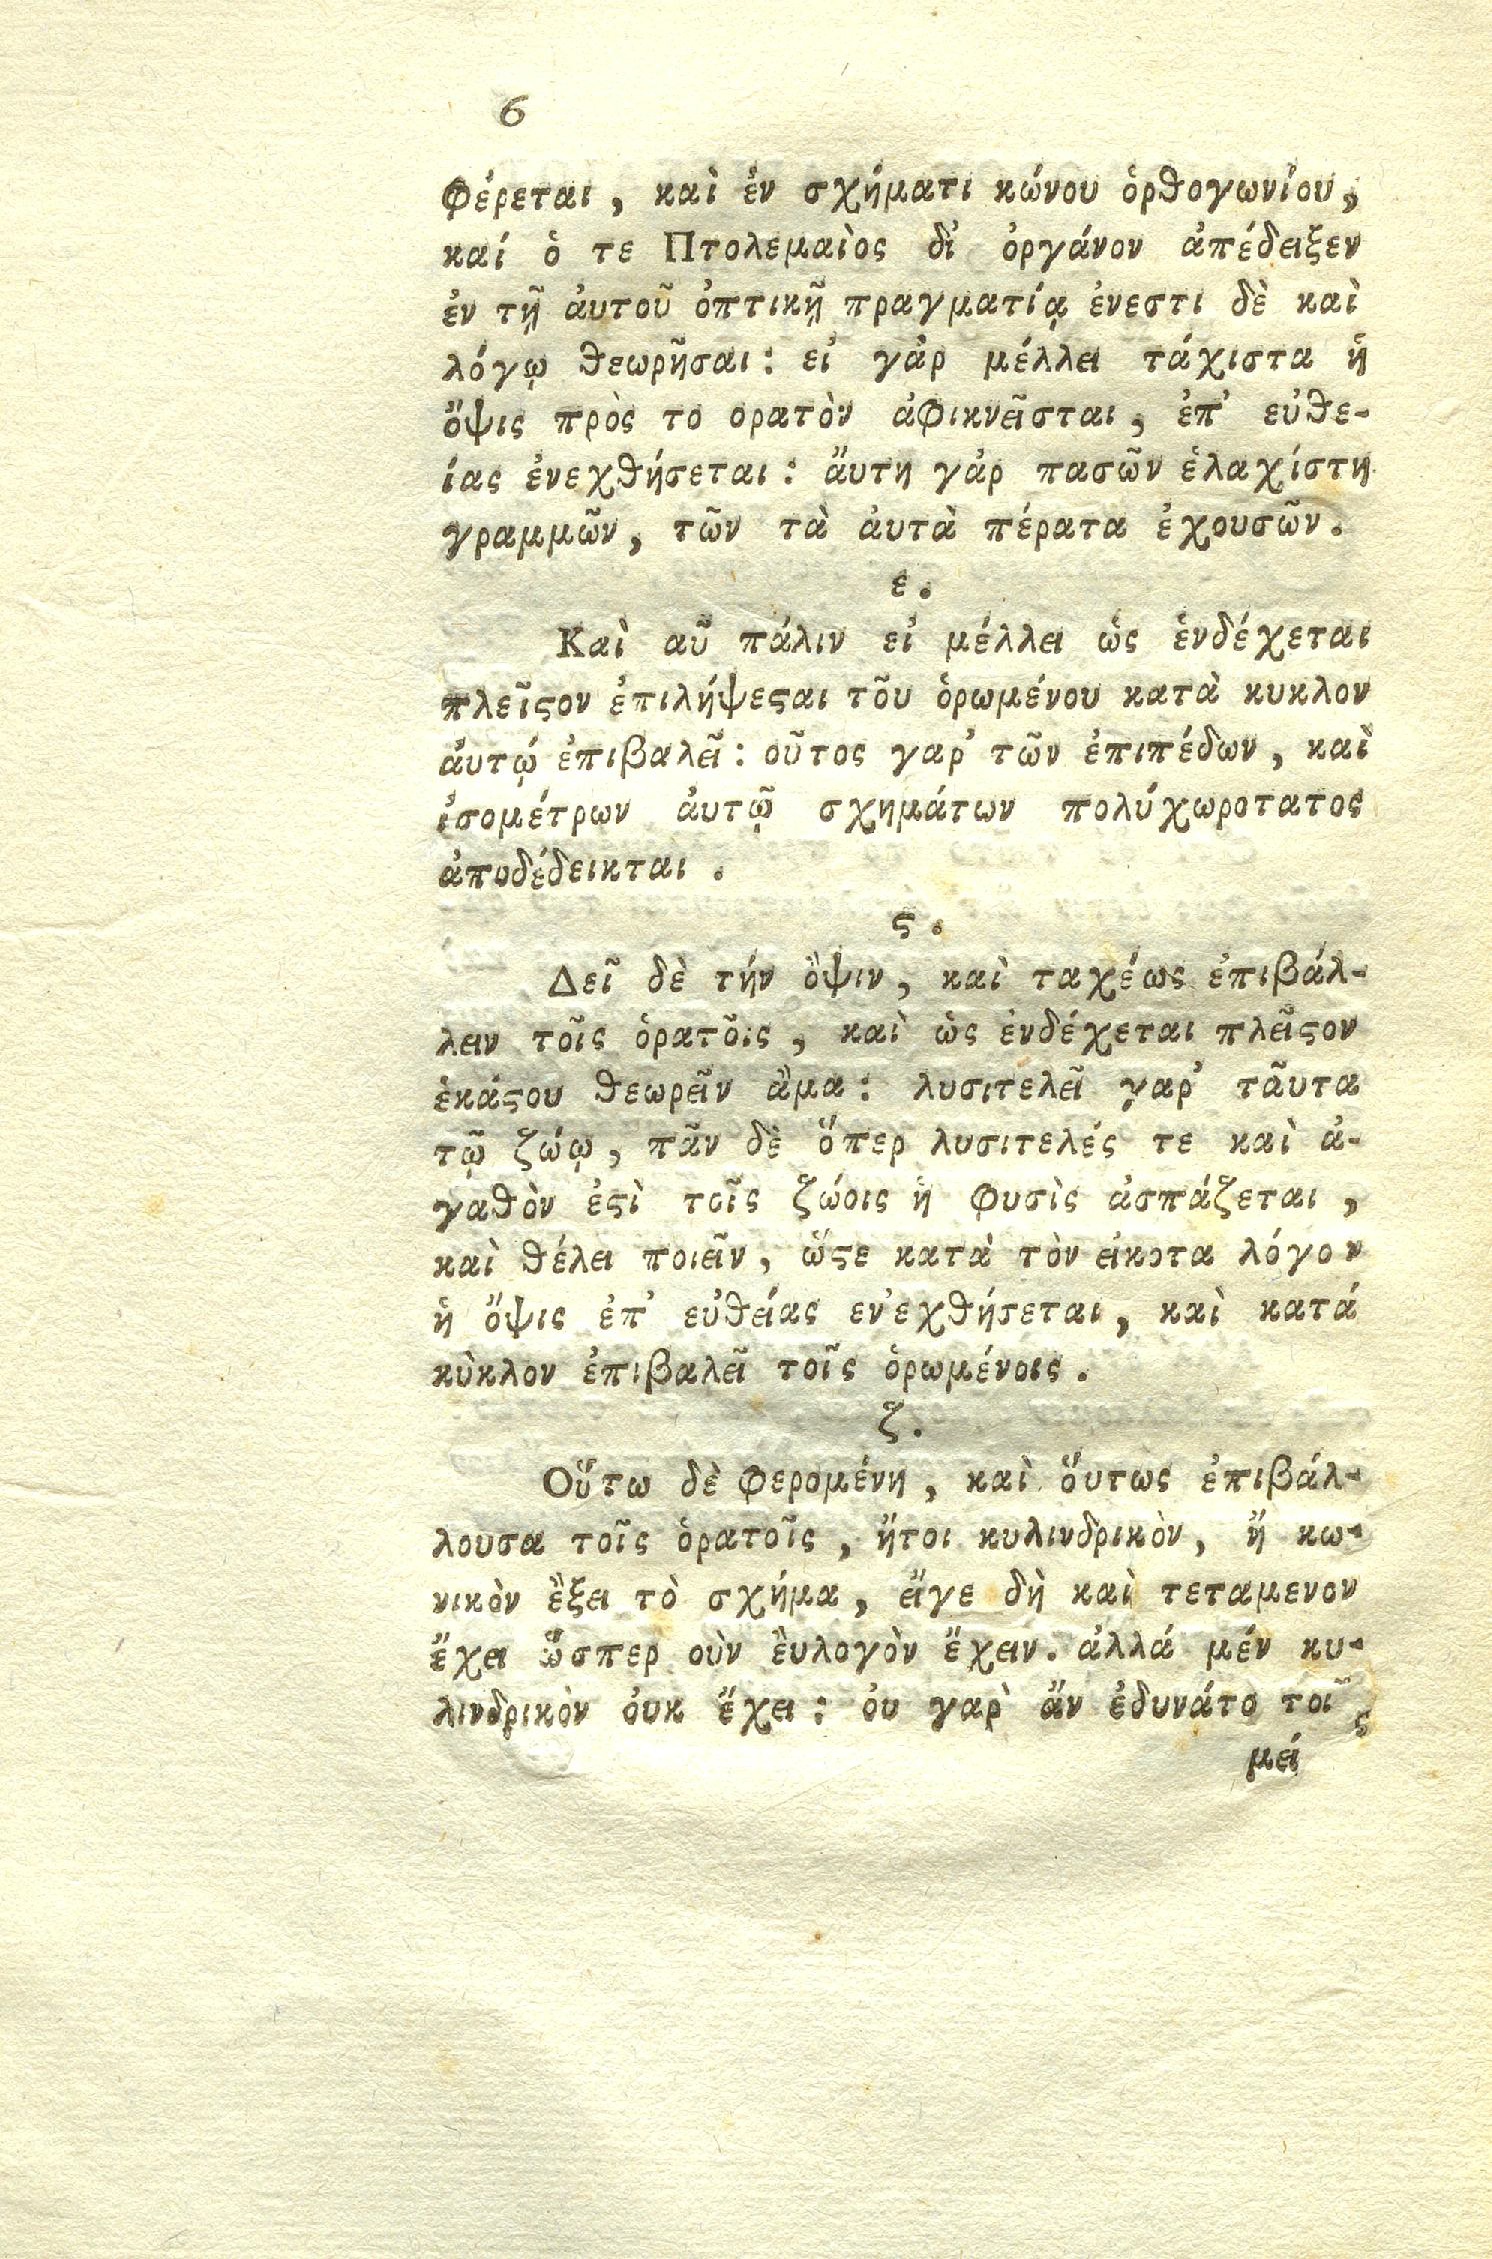 6
φέρεται, καὶ ἐν σχήματι κώνου ὀρθογωνίου,
καί ὁ τε Πτολεμαὶος δἰ ὀργάνον ἀπέδειξεν
ἐν τῇ ἀυτοῦ ὀπτικῇ πραγματίᾳ ἐνεστι δὲ καὶ
λόγῳ θεωρῆσαι: εἰ γἀρ μέλλει τάχιστα ἡ
ὄψις πρὸς το ορατὸν ἀφικνεῖσται, ἐπ' εὐθε-
ίας ἐνεχθήσεται: ἄυτη γἀρ πασῶν ἐλαχίστη
γραμμῶν, τῶν τὰ ἀυτὰ πέρατα ἐχουσῶν.
ε.
Καὶ αὖ πάλιν εἰ μέλλει ὡς ἐνδέχεται
πλεῖςον ἐπιλήψεςαι τõυ ὁρωμένου κατὰ κυκλον
ἀυτῴ ἐπιβαλεῖ: οῦτος γαρ' τῶν ἐπιπέδων, καὶ
ἰσομέτρων ἀυτῷ σχημάτων πολύχωροτατος
ἀποδέδεικται.
ς.
Δεῖ δὲ τήν ὂψιν, καὶ ταχέως ἐπιβάλ-
λειν τοῖς ὁρατõις, καὶ ὡς ἐνδέχεται πλεῖςον
ἑκάςου θεωρεῖν ἅμα: λυσιτελεῖ γαρ' τᾶυτα
τῷ ζώῳ, πᾶν δὲ ὅπερ λυσιτελές τε καὶ ἀ-
γαθὸν ἐςὶ τοῖς ζώοις ἡ φυσὶς ἀσπάζεται,
καὶ θέλει ποιεῖν, ὥςε κατὰ τὸν εἰκοτα λόγον
ἡ ὄψις ἐπ' εὐθείας εν'εχθήσεται, καὶ κατά
κὺκλον ἐπιβαλεῖ τοῖς ὁρωμένοις.
ζ.
Οὕτω δὲ φερομένη, καὶ ὅυτως ἐπιβάλ-
λουσα τοῖς ὁρατοῖς, ἤτοι κυλινδρικὸν, ἤ κω-
νικὸν ἓξει τὸ σχήμα, εἴγε δὴ καὶ τεταμενον
ἔχει ὥσπερ οὺν ἒυλογὸν ἔχειν. ἀλλά μέν κυ-
λινδρικὸν ὀυκ ἔχει: ὀυ γαρ̀ ἄν ἐδυνάτο τοῖς
μεί